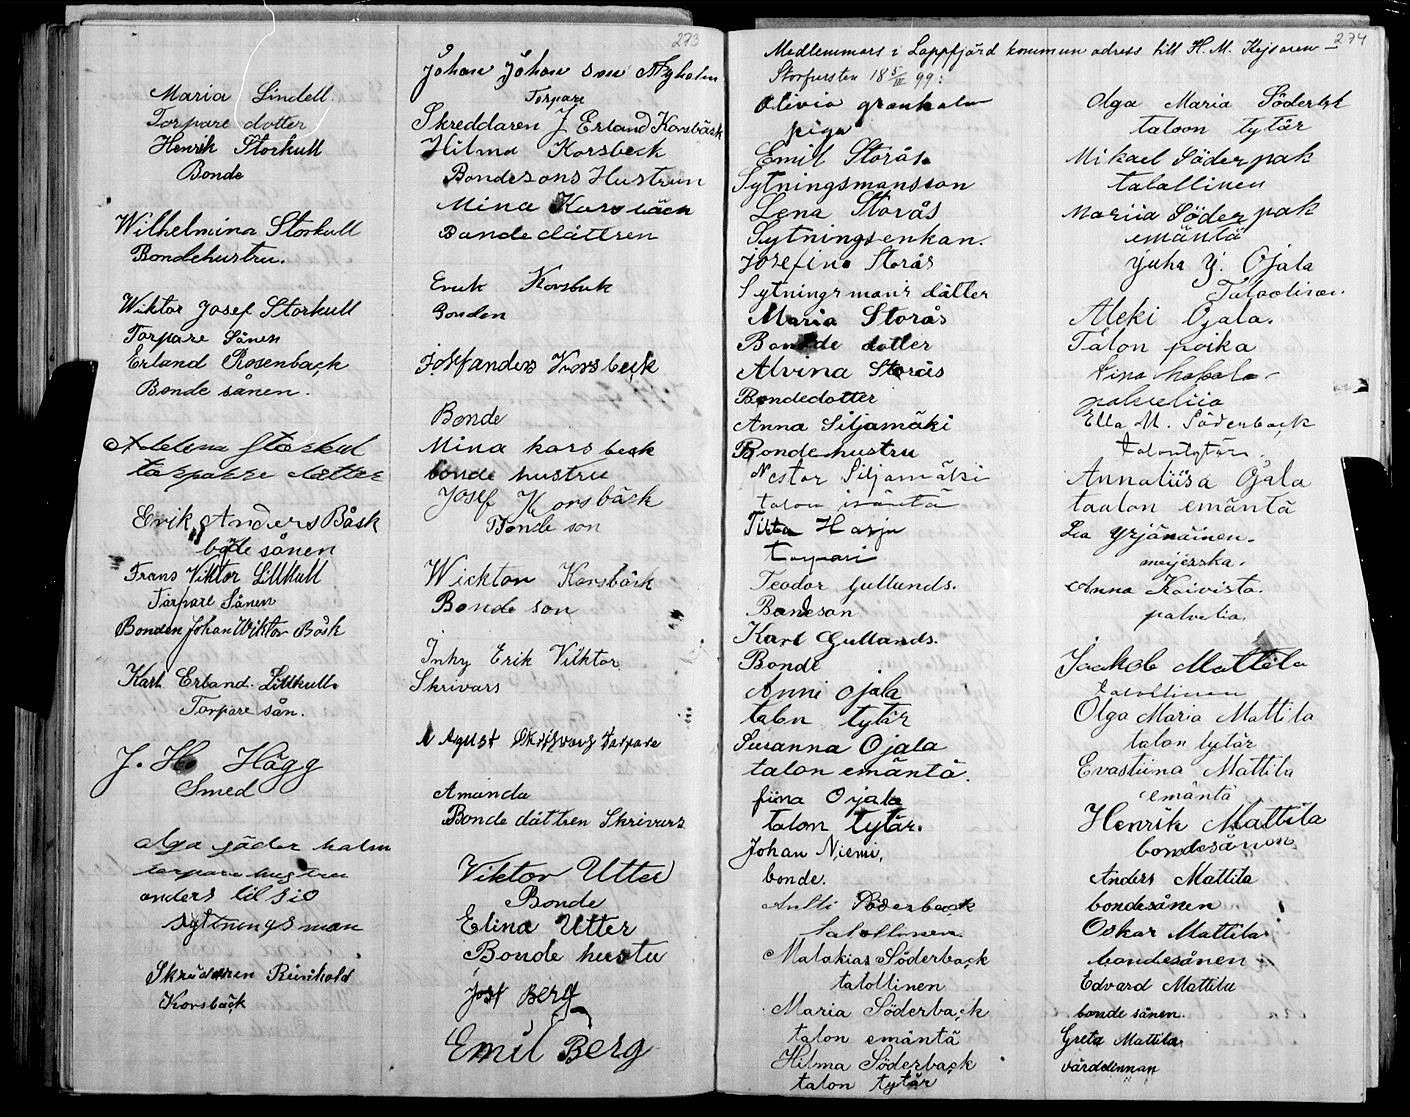 273
Maria Lindell.
Torpare dotter
Henrik Storkull
Bonde
Wilhelmina Storkull
Bondehustru.
Wiktor Josef Storkull
Torpare Sånen
Erland Rosenback
Bonde sånen.
Adelena Storkul
torpare dotter
Erik Anders Båsk
bode sånen
Frans Viktor Lillkull
Torpare Sånen
Bonden Johan Wiktor Båsk
Karl Erland Lillkull
Torpare sån.
J. Ho Hägg
Smed
olga söderholm
torpare hustru
anders lilsio
sytningsman
Skräddaren Reinhold
Korsback
Johan Johan son Nyholm
Torpare
Skreddaren J Erland Korsbäck
Hilma Korsbeck
Bondesons Hustrun
Mina Korsbäck
Bondedåttren
Erik Korsbäk
Bonden
Josefanders Korsbeck
Bonde
Mina korsbeck
bonde hustru
Josef Korsbäck
Bonde son
Wicktor Korsbäck
Bonde son
Inhy Erik Viktor
Skrivars
Agust Skrifvars Torpare
Amanda
Bonde dåttren Skrivars
Viktor Utter
Bonde
Elina Utter
Bonde hustu
Josf Berg
Emil Berg
274
Medlemmars i Lappfjärd kommun adress till H. M. Kejsaren
Storfursten 18 5/III 99:
Olivia granholm
piga
Emil Storås.
Sytningsmansson
Lena Storås
Sytningsenkan.
Josefina Storås
Sytningsmans dåtter
Maria Storås
Bonde dotter
Alvina Storås
Bondedotter
Anna Siljamäki
Bondehustru
Nestor Siljamäki
talon isäntä
Harju
torpari
Teodor Gullands.
Bondeson
Karl Gullands.
Bonde
Anni Ojala
talon tytär
Susanna Ojala
talon emäntä.
fiina Ojala
talon tytär.
Johan Niemi,
bonde.
Antti Söderback
talollinen
Malakias Söderback
talollinen
Maria Söderback
talon emäntä
Hilma Söderback
talon tytär
Olga Maria Söderbk
taloon tytär
Mikael Söderpak
talollinen
Mariia Söderpak
emäntä
Juha J. Ojala
Talollinen.
Aleki Ojala.
Talon poika
palveliia
Ella M. Söderback
talontytär.
Annaliisa Ojala
taalon emäntä
Lea Yrjänäinen.
meijerska.
Anna Koivista.
palvelia.
Jaakob Mattila
talollinen
Olga Maria Mattila
talon tytär
Evastiina Mattila
emäntä
Henrik Mattila
bondesånen
Anders Mattila
bondesånen
Oskar Mattila
bondesånen
Edvard Mattila
bonde sånen.
Greta Mattila
värdinnan